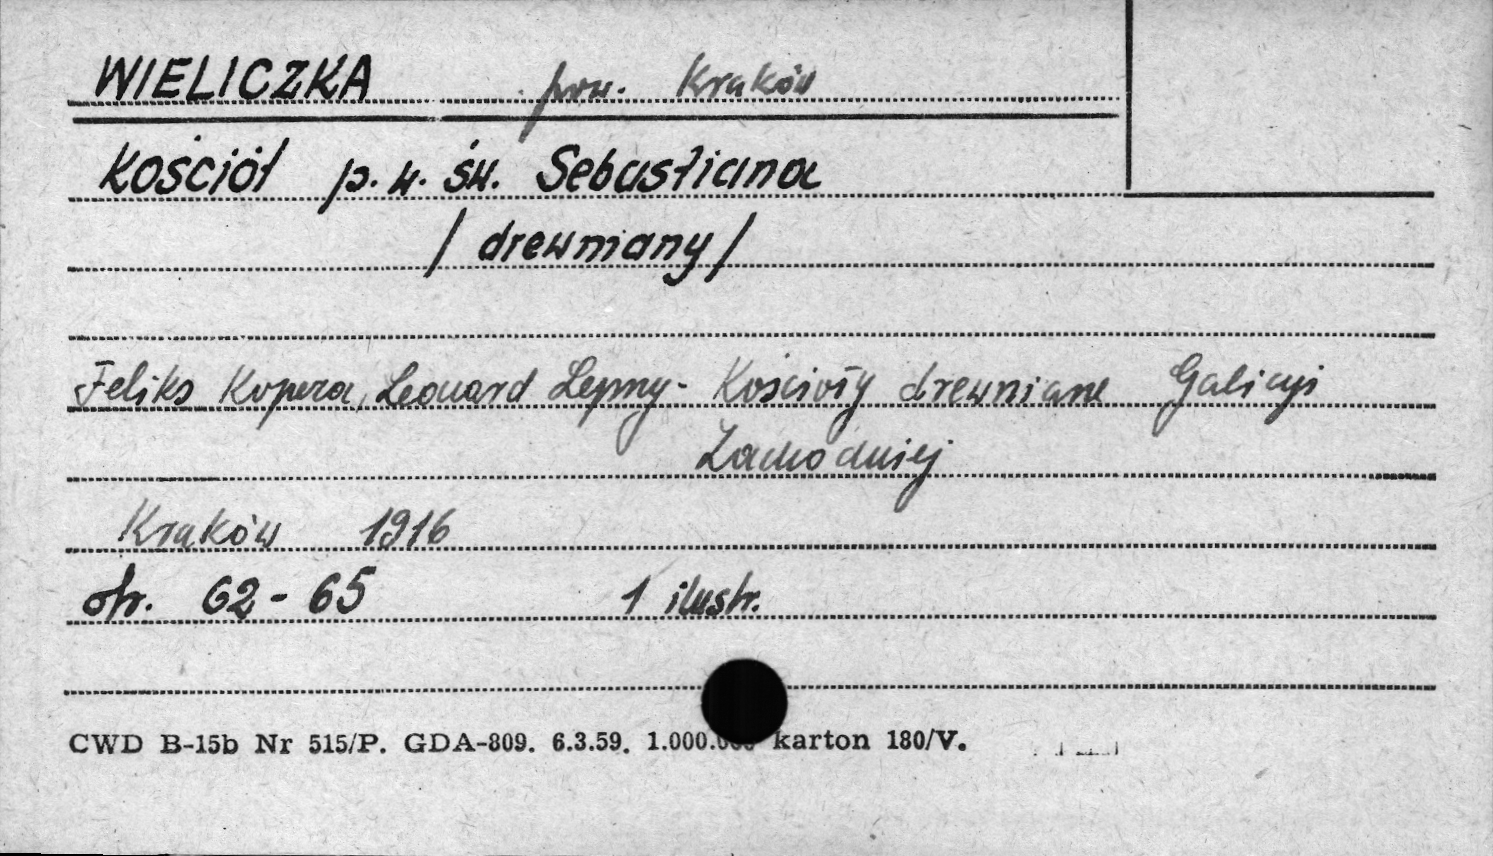 WIELICZKA pow. Kraków
Kościół p.w. św. Sebastiana
/drewniany/
Feliks Kopera, Leonard Lepszy - Kościoły drewniane Galicyi
Zachodniej
Kraków 1916
str. 62-65 1 ilustr.
CWD B-15b Nr 515/P. GDA-809. 6.3.59. 1.000.000 karton 180/V.